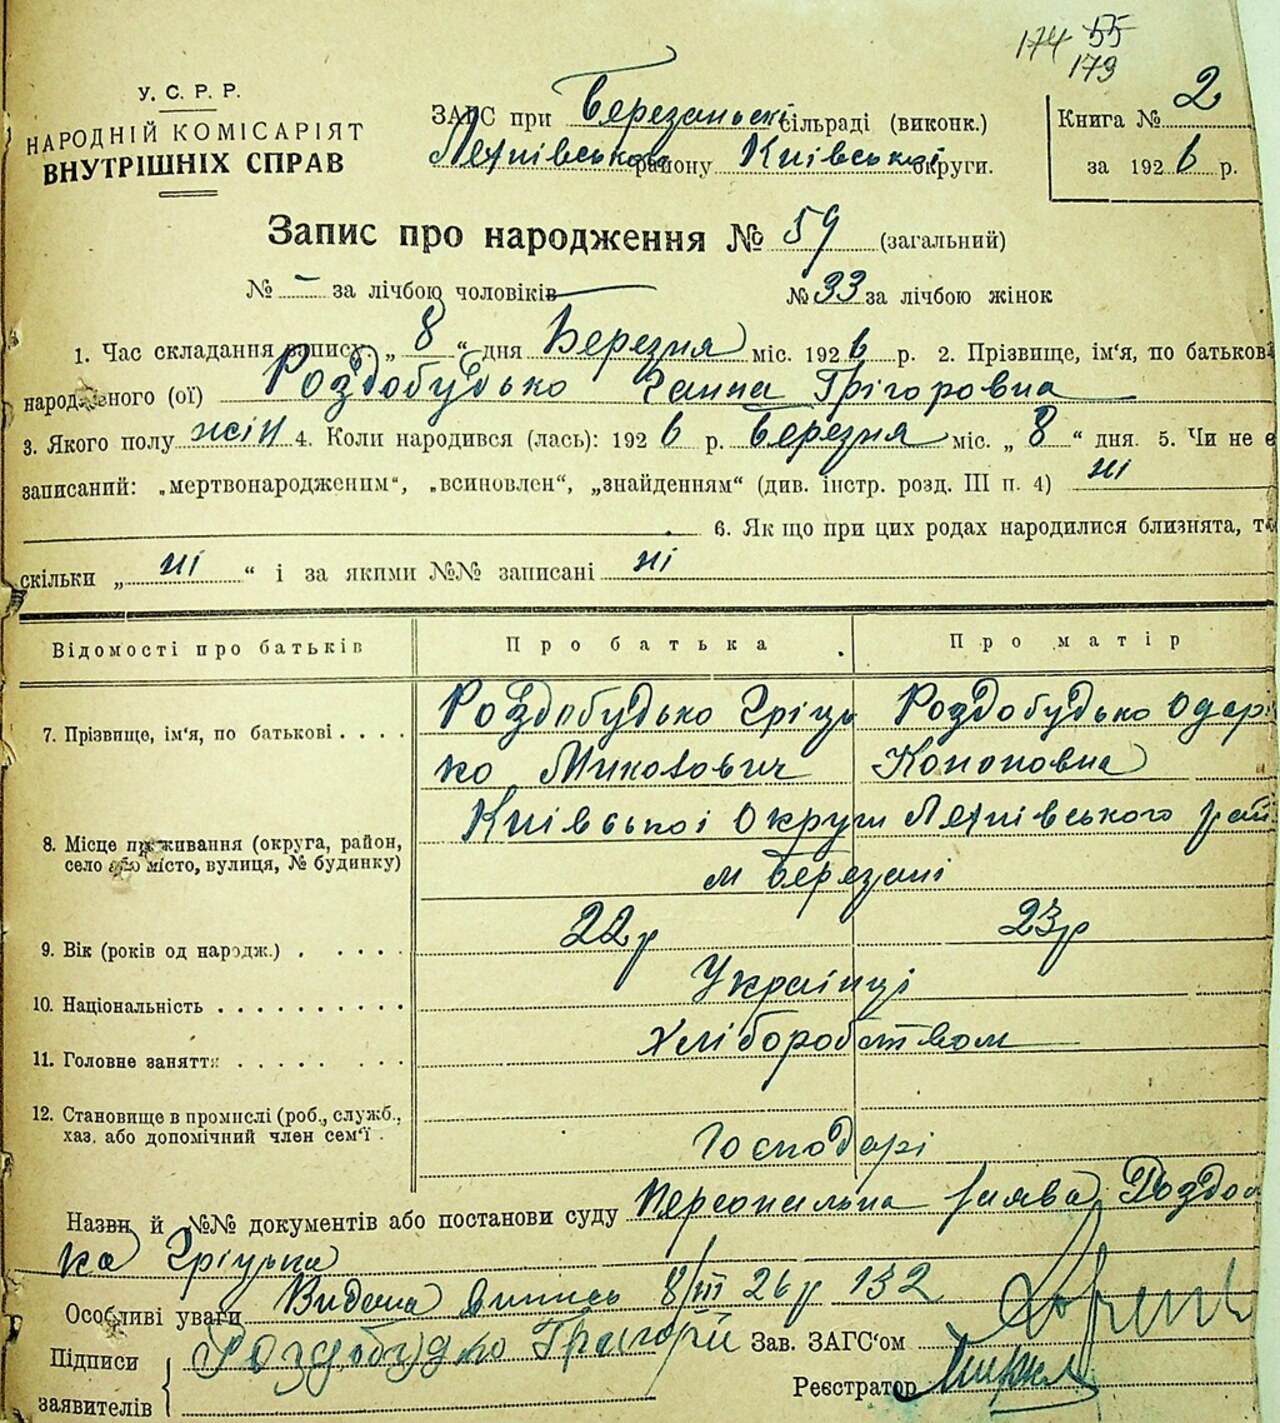 174 55
179
У. С. Р. Р.
НАРОДНІЙ КОМІСАРІЯТ
ВНУТРІШНІХ СПРАВ
ЗАГС при Березанські сільраді (виконк.)
району Київської округи.
Книга № 2
за 1926 р.
Запис про народження № 59 (загальний)
№ – за лічбою чоловіків №33 за лічбою жінок
1. Час складання запису „ 8 “ дня Березня міс. 1926 р. 2. Прізвище, ім‘я, по батькові
народженого (ої) Роздобудько Ганна Грігоровна
3. Якого полу жін 4. Коли народився (лась): 1926 р. березня міс. „ 8 “ дня. 5. Чи не є
записаний: „мертвонародженим“, „всиновлен“, „знайденням“ (див. інстр. розд. III п. 4) ні
6. Як що при цих родах народилися близнята, то
скільки „ ні “ і за якими №№ записані ні
Відомості про батьків Про батька Про матір
7. Прізвище, ім‘я, по батькові . . . . Роздобудько Гріць Роздобудько Одарі
ко Миколович Кононовна
8. Місце проживання (округа, район, Київської Округи рай
село або місто, вулиця, № будинку) м Березані
9. Вік (років од народж.) . . . . . 22р 23р
10. Національність . . . . . . . . . . Українці
11. Головне заняття . . . . . . . . Хліборобством
12. Становище в промислі (роб., служб.,
хаз. або допомічний член сем‘ї . Господарі
Назви й №№ документів або постанови суду Персональна заява Роздол
ка Гріцька
Особливі уваги Видана випись 8/III 26р 132
Підписи Роздобудко Григорій Зав. ЗАГС‘ом
заявителів Реєстратор